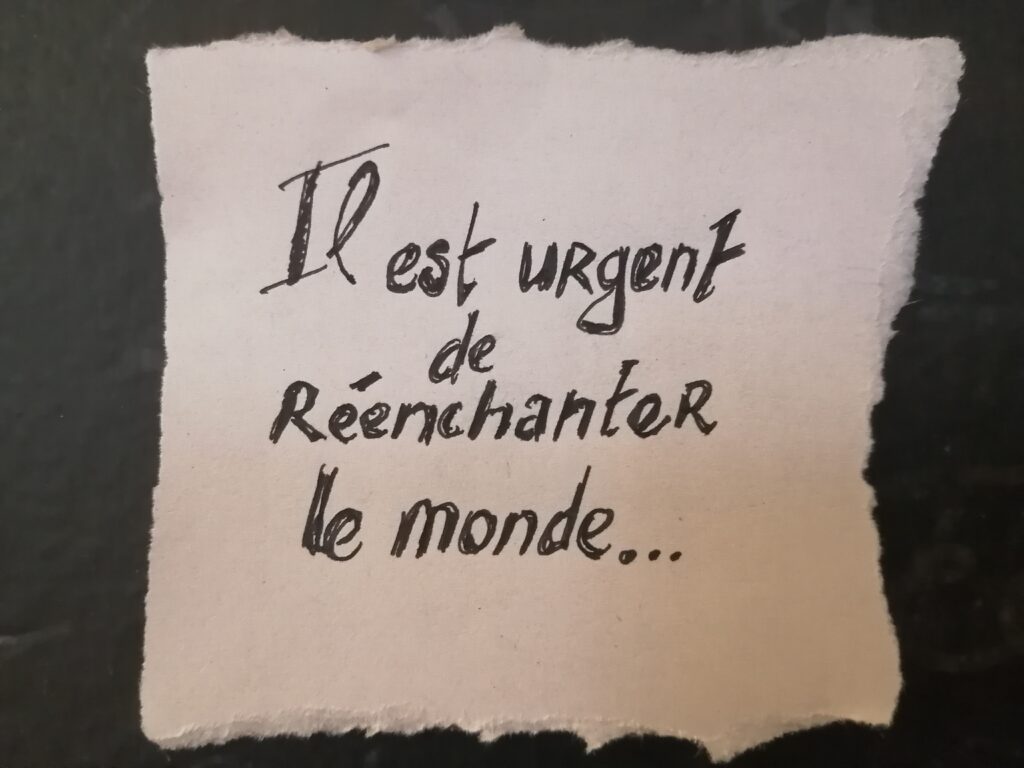 Il est urgent
de
Réenchanter
le monde...